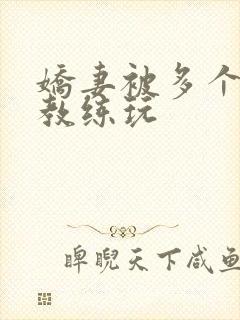 嬌妻被多个
教练玩
睥睨天下咸鱼